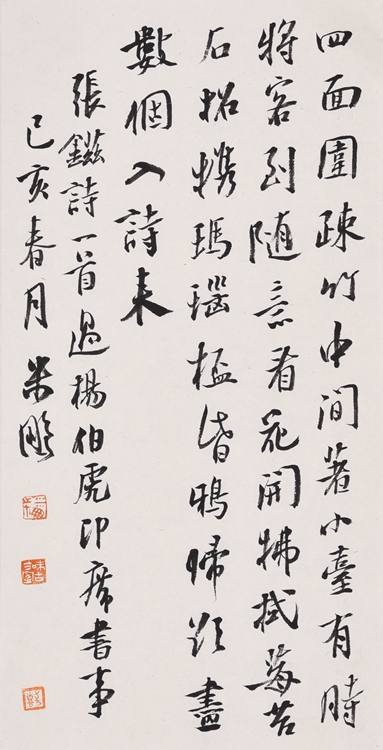 四面圍疎竹中間著小臺有時
將客到隨意看花開拂拭莓苔
石招攜瑪瑙桮昏鴉歸欲盡
數個入詩來
張鎡詩一首過楊伯虎即席書事
己亥春月